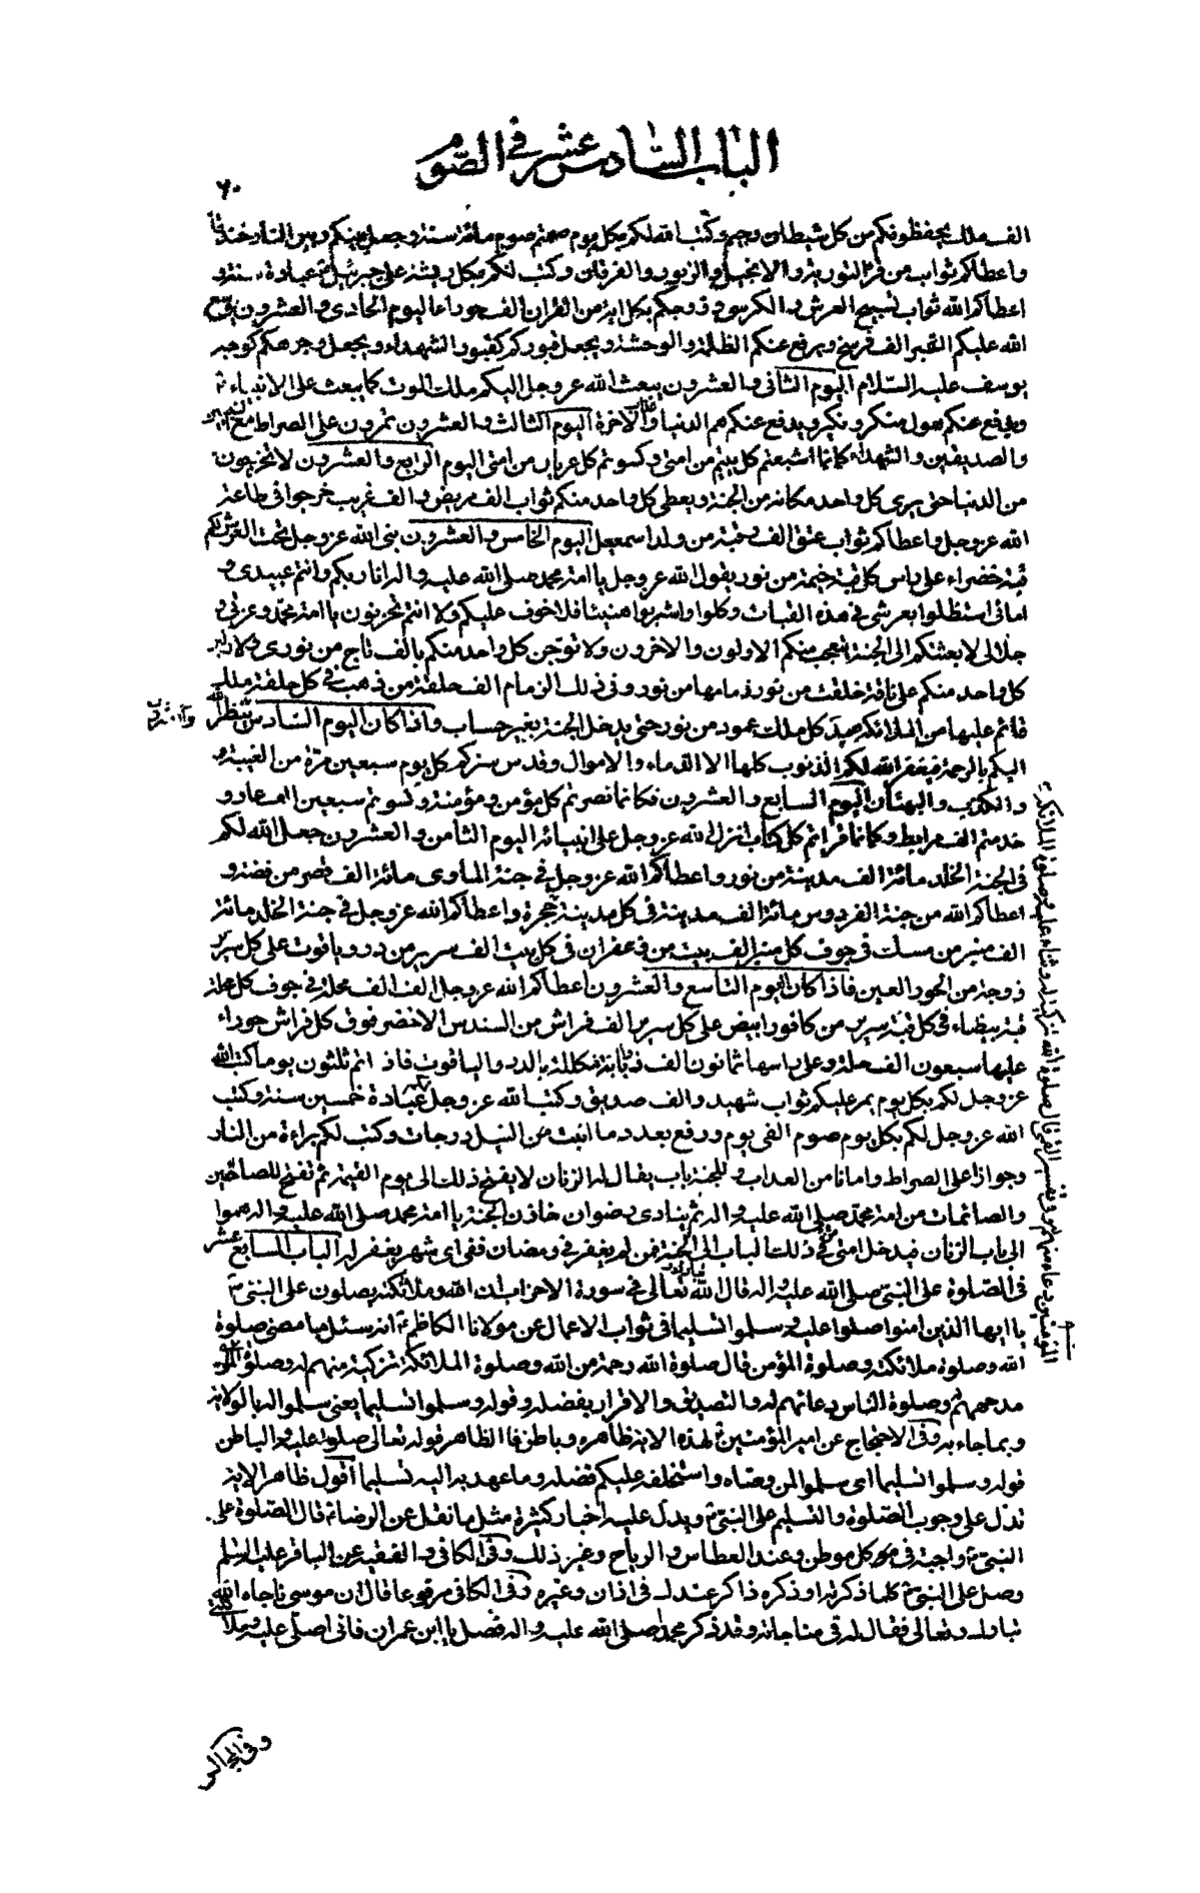 الباب السادس عشر في الصوم
٦٠
الف ملك يحفظونكم من كل شيطان رجيم وكتب الله لكم بكل يوم صمتم صوم مائة سنة وجعل بينكم وبين النار خندقا
واعطاكم ثواب من قرء التورية والانجيل والزبور والفرقان وكتب لكم بكل ريشة على جبرئيل عبادة سنة و
اعطاكم الله ثواب تسبيح العرش والكرسي وزوجكم بكل اية من القران الف حوراء اليوم الحادي والعشرون يوسع
الله عليكم القبر الف فرسخ ويرفع عنكم الظلمة والوحشة ويجعل قبوركم كقبور الشهداء ويجعل وجوهكم كوجه
يوسف عليه السلام اليوم الثاني والعشرون يبعث الله عز وجل اليكم ملك الموت كما يبعث على الانبياء
ويدفع عنكم هول منكر ونكير ويدفع عنكم هم الدنيا وعذاب الاخرة اليوم الثالث والعشرون تمرون على الصراط مع النبيين
والصديقين والشهداء كانما اشبعتم كل يتيم من امتي وكسوتم كل عريان من امتي اليوم الرابع والعشرون لا تخرجون
من الدنيا حتى يرى كل واحد مكانه من الجنة ويعطى كل واحد منكم ثواب الف مريض والف غريب خرجوا في طاعة
الله عز وجل واعطاكم ثواب عتق الف رقبة من ولد اسمعيل اليوم الخامس والعشرون بنى الله عز وجل تحت العرش لكم
قبة خضراء على راس كل قبة خيمة من نور يقول الله عز وجل يا امة محمد صلى الله عليه واله انا ربكم وانتم عبيدي و
امائي استظلوا بعرشي في هذه القباب وكلوا واشربوا هنيئا فلا خوف عليكم ولا انتم تحزنون يا امة محمد وعزتي و
جلالي لابعثنكم الى الجنة يتعجب منكم الاولون والاخرون ولاتوجن كل واحد منكم بالف تاج من نور ولاركبن
كل واحد منكم على ناقة خلقت من نور زمامها من نور وفي ذلك الزمام الف حلقة من ذهب في كل حلقة ملك
قائم عليها من الملائكة بيد كل ملك عمود من نور حتى يدخل الجنة بغير حساب واذا كان اليوم السادس والعشرون ينظر الله
اليكم بالرحمة فيغفر الله لكم الذنوب كلها الا الدماء والاموال وقدس بيتكم كل يوم سبعين مرة من الغيبة و
والكذب والبهتان اليوم السابع والعشرون فكانما نصرتم كل مؤمن ومؤمنة وكسوتم سبعين الف عار و
خدمتم الف مرابط وكانما قراتم كل كتاب انزله الله عز وجل على انبيائه اليوم الثامن والعشرون جعل الله لكم
في الجنة الخلد مائة الف مدينة من نور واعطاكم الله عز وجل في جنة الماوى مائة الف قصر من فضة و
اعطاكم الله من جنة الفردوس مائة الف مدينة في كل مدينة حجرة واعطاكم الله عز وجل في جنة الخلد مائة
الف منبر من مسك في جوف كل منبر الف بيت من زعفران في كل بيت الف سرير من در وياقوت على كل سرير
زوجة من الحور العين فاذا كان اليوم التاسع والعشرون اعطاكم الله عز وجل الف الف محلة في جوف كل محلة
قبة بيضاء في كل قبة سرير من كافور ابيض على كل سرير الف فراش من السندس الاخضر فوق كل فراش حوراء
عليها سبعون الف حلة وعلى راسها ثمانون الف ذؤابة مكللة بالدر والياقوت فاذا تم ثلثون يوما كتب الله
عز وجل لكم بكل يوم يمر عليكم ثواب شهيد والف صديق وكتب الله عز وجل لكم عبادة خمسين سنة وكتب
الله عز وجل لكم بكل يوم صوم الفي يوم ورفع بعدد ما انبت من النيل درجات وكتب لكم براءة من النار
وجوازا على الصراط وامانا من العذاب وللجنة باب يقال له الريان لا يفتح ذلك الى يوم القيمة ثم تفتح للصائمين
والصائمات من امة محمد صلى الله عليه واله ثم ينادي رضوان خازن الجنة يا امة محمد صلى الله عليه واله هلموا
الى باب الريان فيدخل امتي في ذلك الباب الى الجنة فمن لم يغفر في رمضان ففي اي شهر يغفر له الباب السابع عشر
في الصلوة على النبي صلى الله عليه واله قال الله تبارك وتعالى في سورة الاحزاب ان الله وملائكته يصلون على النبي
يا ايها الذين امنوا صلوا عليه وسلموا تسليما في ثواب الاعمال عن مولانا الكاظم انه سئل ما معنى صلوة
الله وصلوة ملائكته وصلوة المؤمن قال صلوة الله رحمة من الله وصلوة الملائكة تزكية منهم له وصلوة
مدحهم له وصلوة الناس دعائهم له والتصديق والاقرار بفضله وقوله وسلموا تسليما يعني سلموا له بالولاية
وبما جاء به وفي الاحتجاج عن امير المؤمنين لهذه الاية ظاهر وباطن فالظاهر قوله تعالى صلوا عليه والباطن
قوله وسلموا تسليما اي سلموا لمن وصاه واستخلفه عليكم فضله وما عهد به اليه تسليما اقول ظاهر الاية
تدل على وجوب الصلوة والتسليم على النبي ويدل عليه اخبار كثيرة مثل ما نقل عن الرضا قال الصلوة على
النبي واجبة في كل موطن وعند العطاس والرياح وغير ذلك وفي الكافي والفقيه عن الباقر عليه السلم
وصل على النبي كلما ذكرته او ذكره ذاكر عندك في اذان وغيره وفي الكافي مرفوعا قال ان موسى ناجاه الله
تبارك وتعالى فقال له في مناجاته وقد ذكر محمدا صلى الله عليه واله فصل يا ابن عمران فاني اصلي عليه وملائكتي